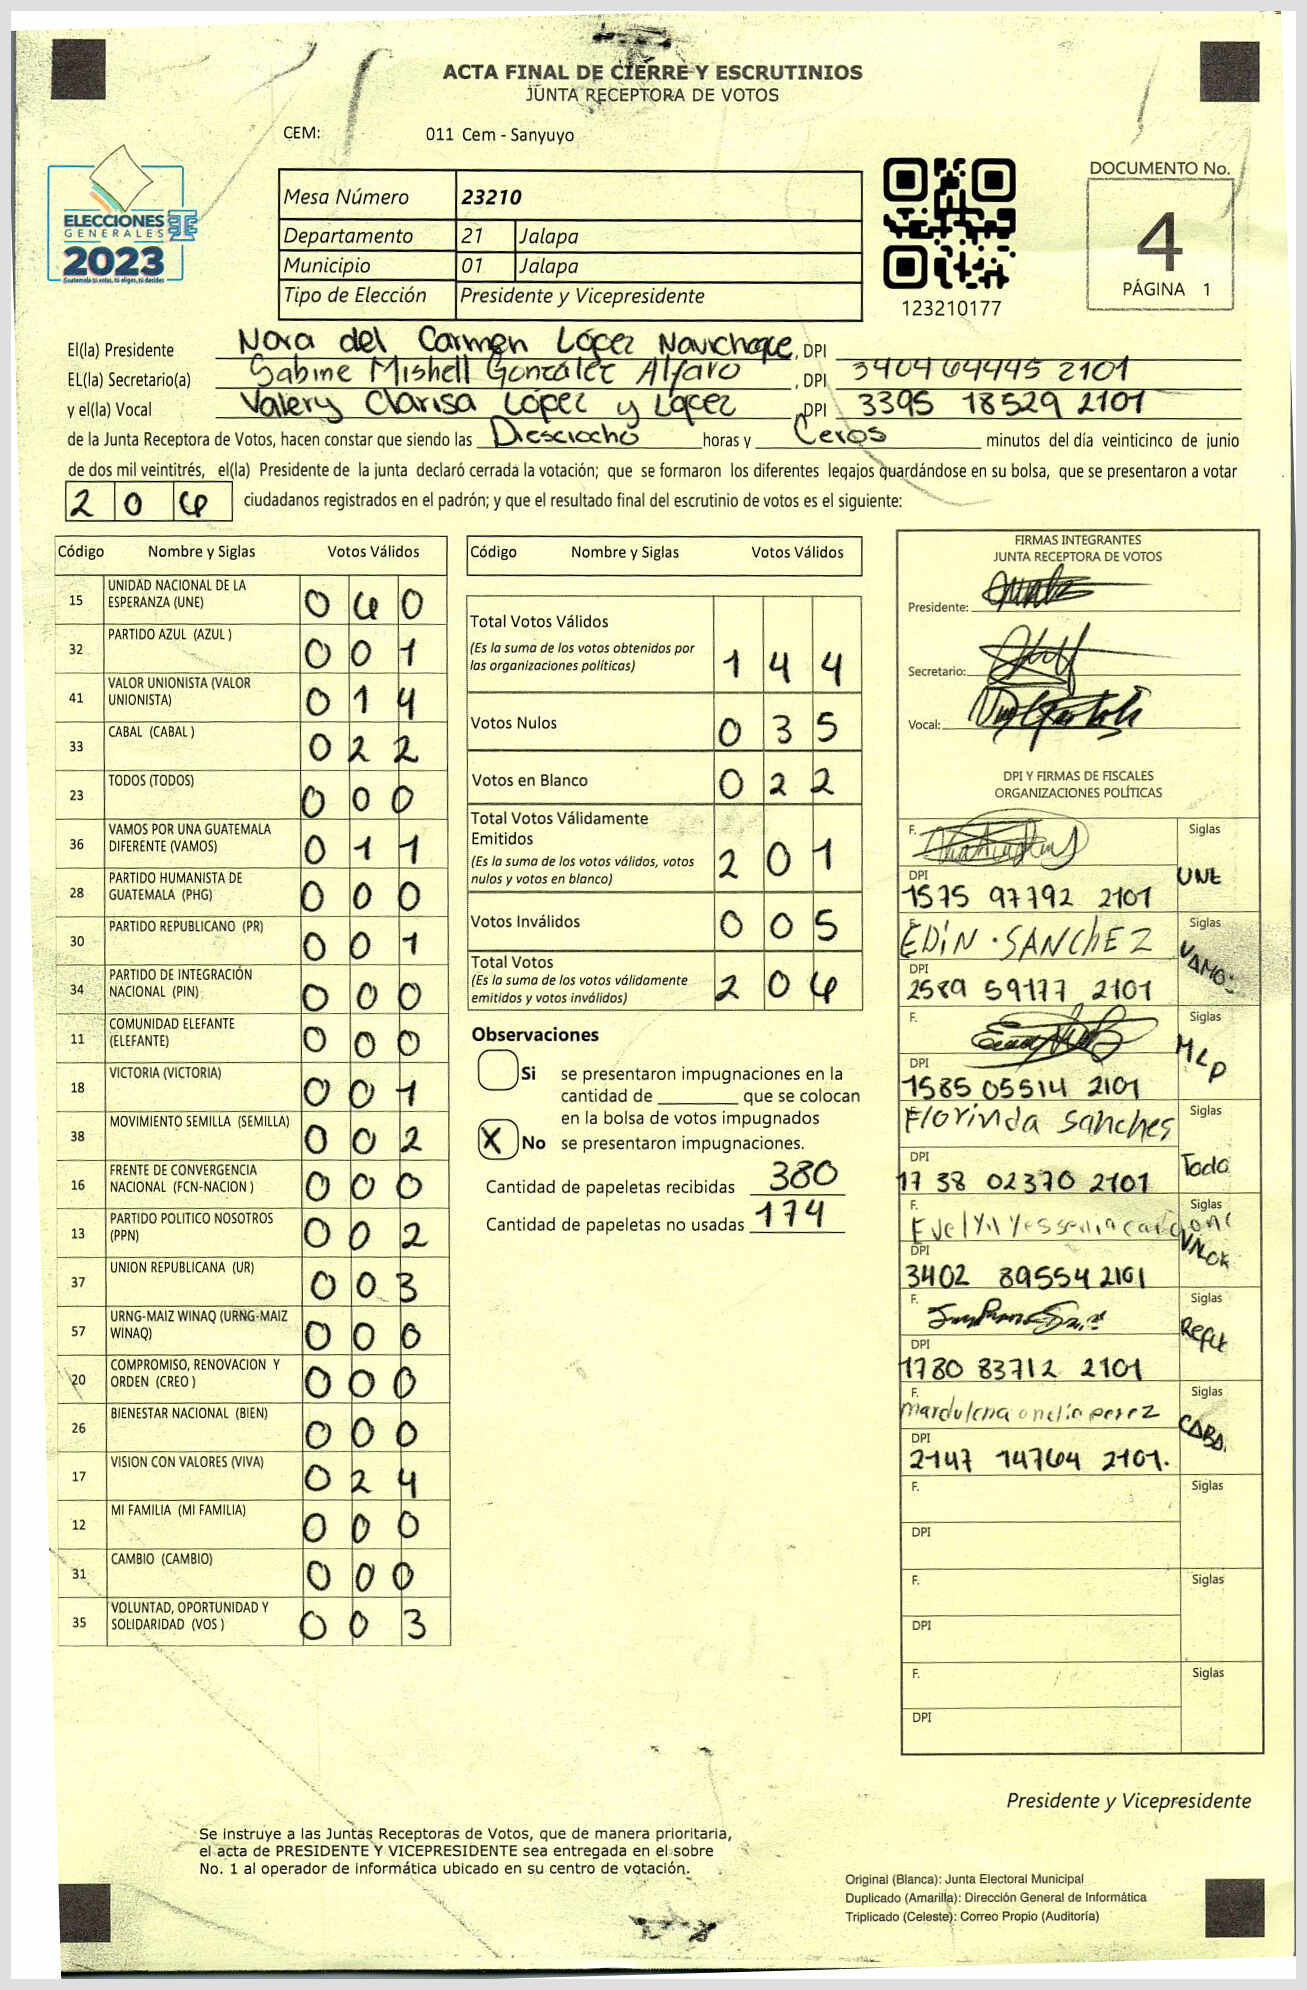 ACTA FINAL DE CIERRE Y ESCRUTINIOS
JUNTA RECEPTORA DE VOTOS
CEM: 011 Cem - Sanyuyo
ELECCIONES
GENERALES
2023
Guatemala tú votas, tú eliges, tú decides
Mesa Número 23210
Departamento 21 Jalapa
Municipio 01 Jalapa
Tipo de Elección Presidente y Vicepresidente
123210177
DOCUMENTO No.
4
PÁGINA 1
El(la) Presidente Nora del Carmen López Navichoque, DPI
EL(la) Secretario(a) Sabine Mishell González Alfaro, DPI 3404 64445 2101
y el(la) Vocal Valery Clarisa López y López, DPI 3395 18529 2101
de la Junta Receptora de Votos, hacen constar que siendo las Diesciocho horas y Ceros minutos del día veinticinco de junio
de dos mil veintitrés, el(la) Presidente de la junta declaró cerrada la votación; que se formaron los diferentes legajos guardándose en su bolsa, que se presentaron a votar
206 ciudadanos registrados en el padrón; y que el resultado final del escrutinio de votos es el siguiente:
Código Nombre y Siglas Votos Válidos
15 UNIDAD NACIONAL DE LA ESPERANZA (UNE) 060
32 PARTIDO AZUL (AZUL ) 001
41 VALOR UNIONISTA (VALOR UNIONISTA) 014
33 CABAL (CABAL ) 022
23 TODOS (TODOS) 000
36 VAMOS POR UNA GUATEMALA DIFERENTE (VAMOS) 011
28 PARTIDO HUMANISTA DE GUATEMALA (PHG) 000
30 PARTIDO REPUBLICANO (PR) 001
34 PARTIDO DE INTEGRACIÓN NACIONAL (PIN) 000
11 COMUNIDAD ELEFANTE (ELEFANTE) 000
18 VICTORIA (VICTORIA) 001
38 MOVIMIENTO SEMILLA (SEMILLA) 002
16 FRENTE DE CONVERGENCIA NACIONAL (FCN-NACION ) 000
13 PARTIDO POLITICO NOSOTROS (PPN) 002
37 UNION REPUBLICANA (UR) 003
57 URNG-MAIZ WINAQ (URNG-MAIZ WINAQ) 000
20 COMPROMISO, RENOVACION Y ORDEN (CREO ) 000
26 BIENESTAR NACIONAL (BIEN) 000
17 VISION CON VALORES (VIVA) 024
12 MI FAMILIA (MI FAMILIA) 000
31 CAMBIO (CAMBIO) 000
35 VOLUNTAD, OPORTUNIDAD Y SOLIDARIDAD (VOS ) 003
Código Nombre y Siglas Votos Válidos
Total Votos Válidos
(Es la suma de los votos obtenidos por
las organizaciones políticas) 144
Votos Nulos 035
Votos en Blanco 022
Total Votos Válidamente
Emitidos
(Es la suma de los votos válidos, votos
nulos y votos en blanco) 201
Votos Inválidos 005
Total Votos
(Es la suma de los votos válidamente
emitidos y votos inválidos) 206
Observaciones
Si se presentaron impugnaciones en la
cantidad de ________ que se colocan
en la bolsa de votos impugnados
X No se presentaron impugnaciones.
Cantidad de papeletas recibidas 380
Cantidad de papeletas no usadas 174
FIRMAS INTEGRANTES
JUNTA RECEPTORA DE VOTOS
Presidente:
Secretario:
Vocal:
DPI Y FIRMAS DE FISCALES
ORGANIZACIONES POLÍTICAS
F. Siglas
DPI UNE
1575 97792 2101
F. EDIN . SANCHEZ Siglas
DPI VAMOS
2589 59177 2101
F. Siglas
DPI MLP
1585 05514 2101
Florinda Sanches Siglas
DPI Todo
1738 02370 2101
F. Evelyn Yessenia Siglas
DPI VALOR
3402 89554 2101
F. Siglas
DPI
1780 83712 2101
F. perez Siglas
DPI CABA.
2147 14764 2101.
F. Siglas
DPI
F. Siglas
DPI
F. Siglas
DPI
Presidente y Vicepresidente
Se instruye a las Juntas Receptoras de Votos, que de manera prioritaria,
el acta de PRESIDENTE Y VICEPRESIDENTE sea entregada en el sobre
No. 1 al operador de informática ubicado en su centro de votación.
Original (Blanca): Junta Electoral Municipal
Duplicado (Amarilla): Dirección General de Informática
Triplicado (Celeste): Correo Propio (Auditoría)